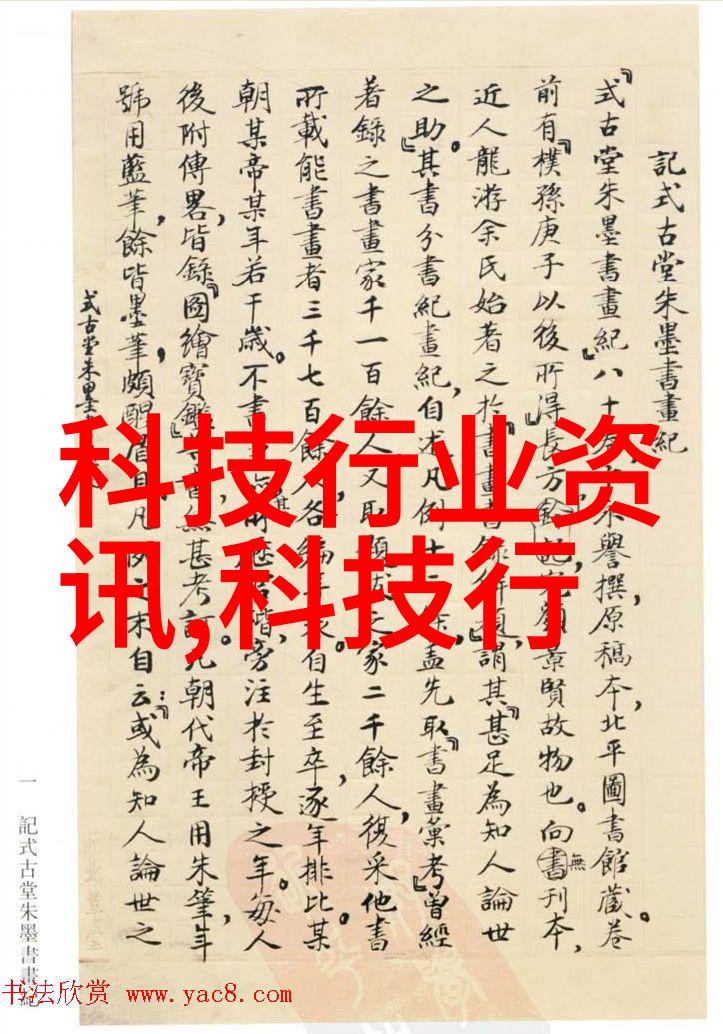 記式古堂朱墨書畫紀
『式古堂朱墨書畫紀』八十卷，譽撰，原稿本，北平圖書館藏。卷
前有『樸孫庚子以後所得』長方記，景賢故物也。向無書刊本，
近人龍游余氏始著之於『書畫書錄解題』，謂其『甚足為知人論世
之助』。其書分書紀畫紀，自述凡例十餘，蓋先取『書畫彙考』曾經
著錄之書畫家千一百餘人，又取之家二千餘人，復采他書
所載能書畫者三千七百餘人，各編。自生至卒，逐年排比，某
朝某帝某年若干歲。不書，皆旁注於封授之年。每人
後附傳畧，皆錄『圖繪寶鑑』，無甚考訂。凡朝代帝王用朱筆，年
號用藍筆，餘皆墨筆，頗醒眉目。凡例之末自云：『或為知人論世之
式古堂朱墨
一 記式古堂朱墨書畫紀
科技行业资
讯,科技行
书法欣赏 www.yac8.com